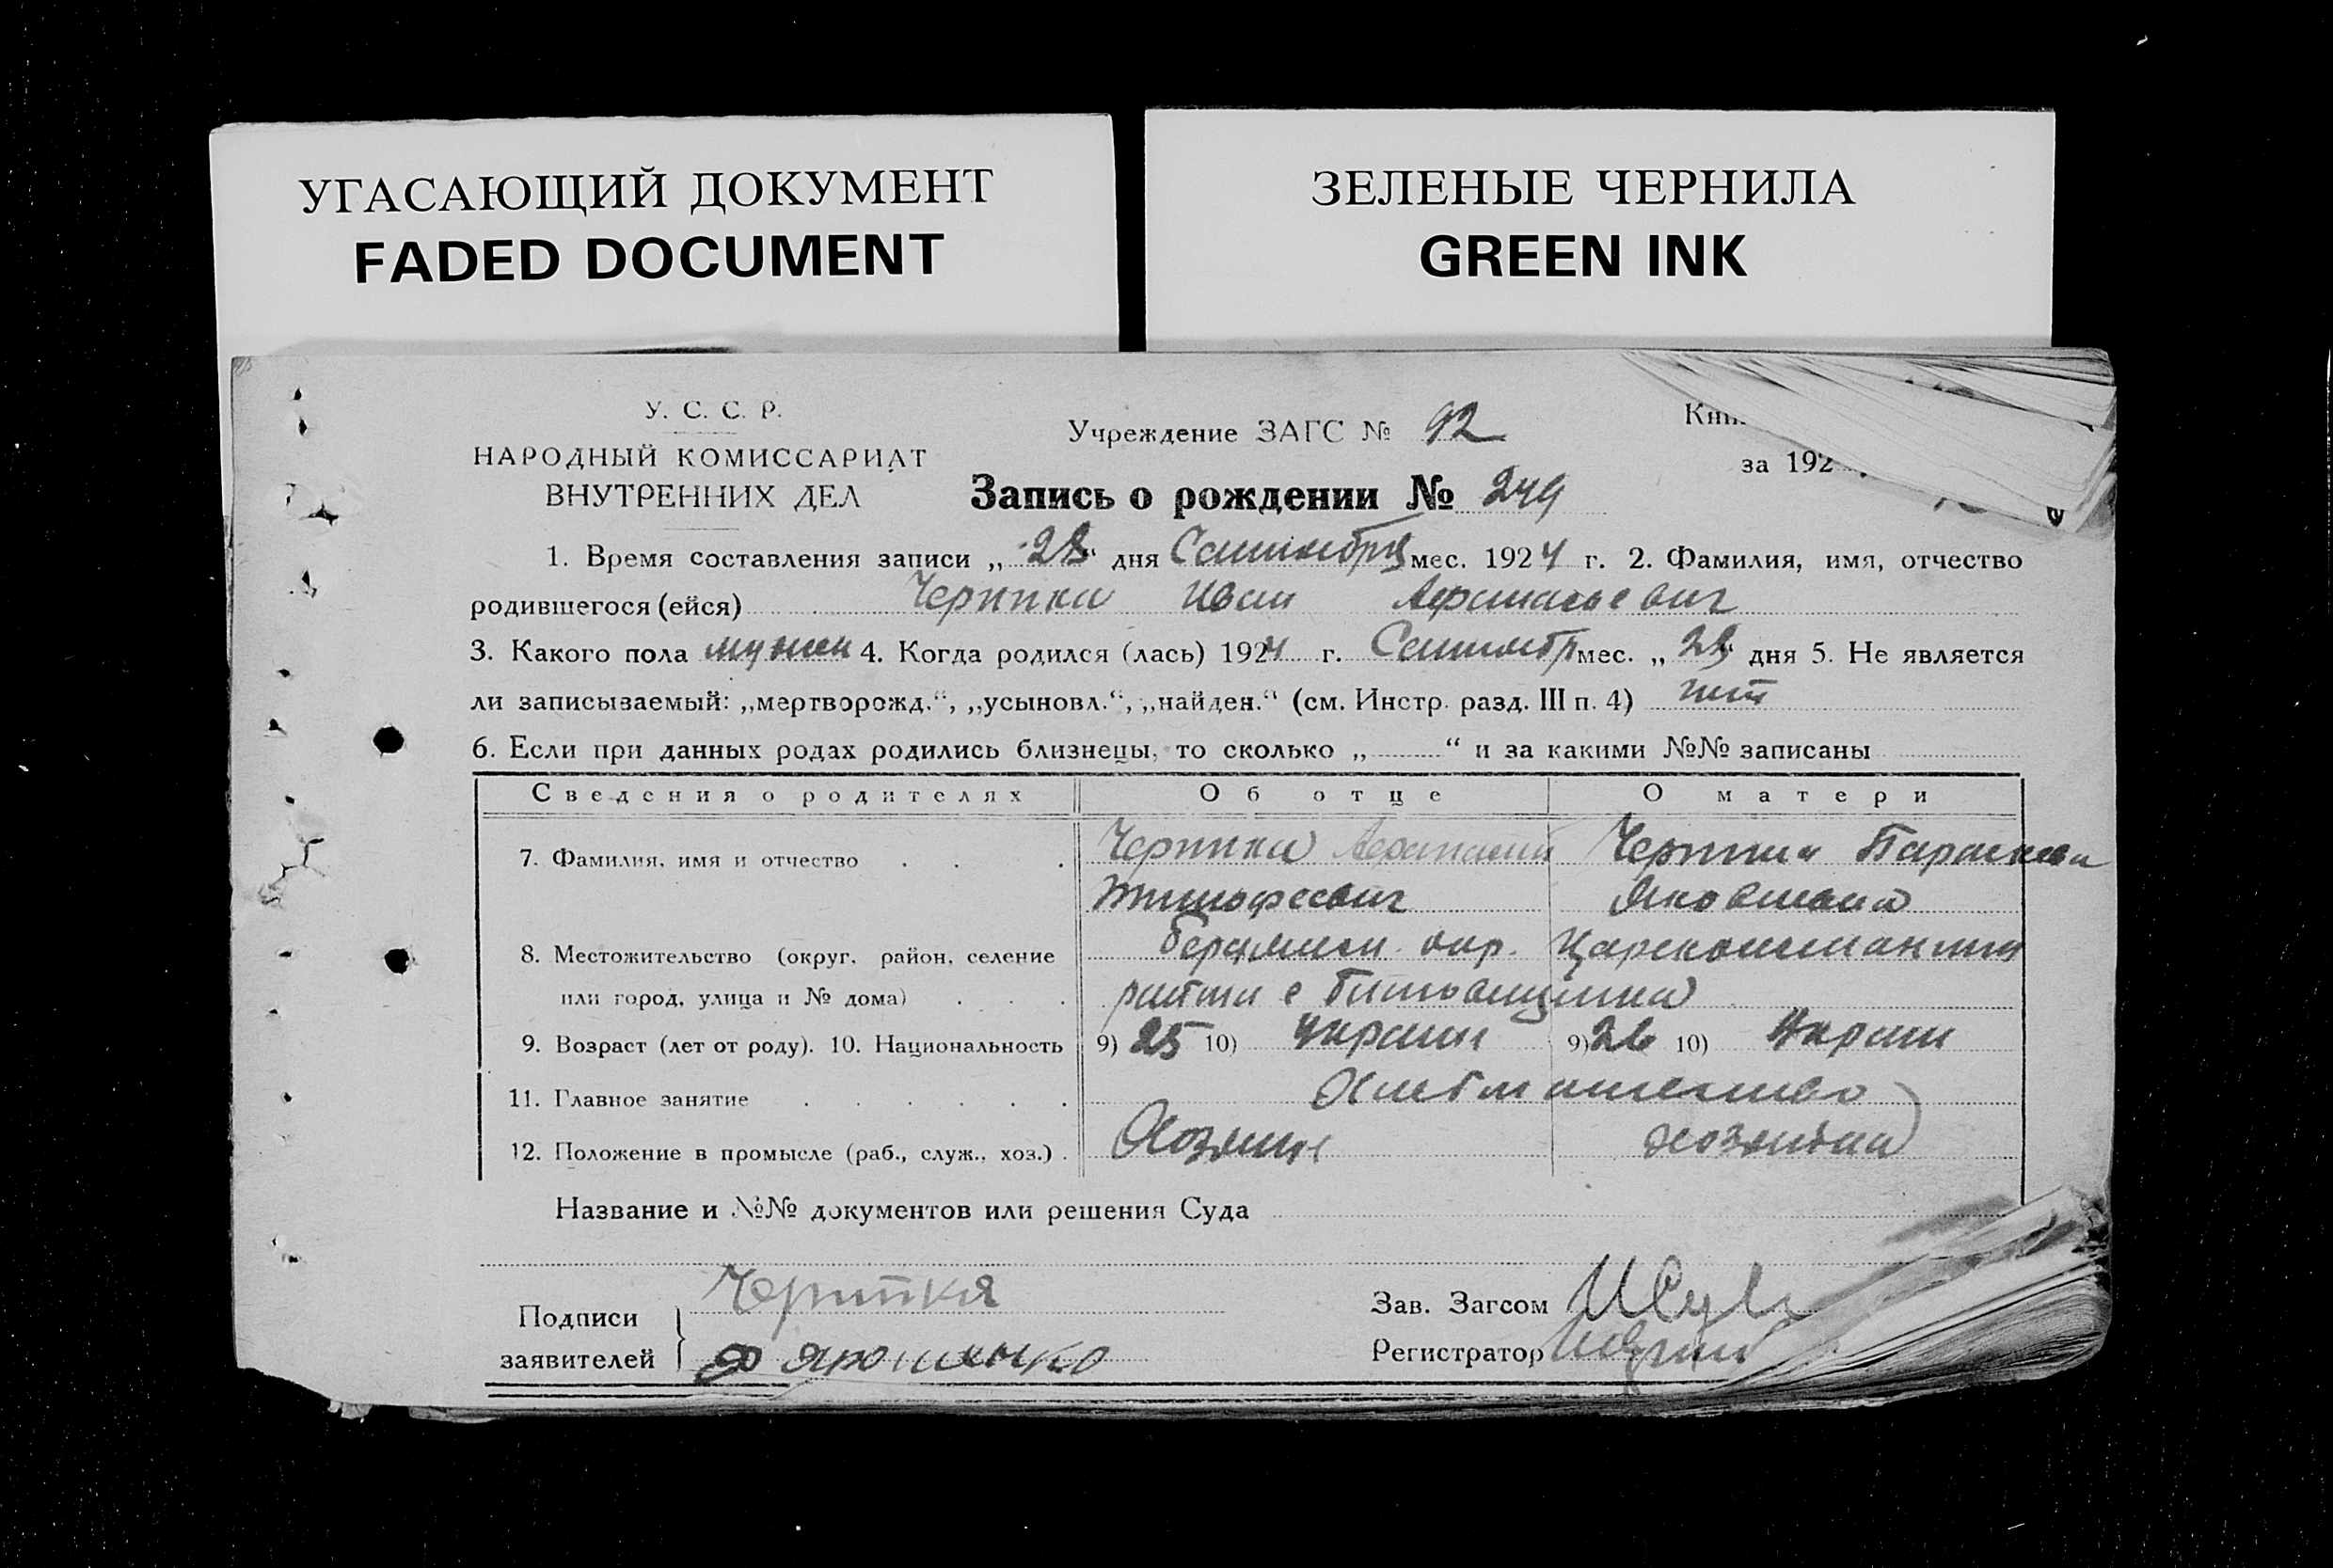 УГАСАЮЩИЙ ДОКУМЕНТ
FADED DOCUMENT
ЗЕЛЕНЫЕ ЧЕРНИЛА
GREEN INK
У. С. С. Р.
НАРОДНЫЙ КОМИССАРИАТ
ВНУТРЕННИХ ДЕЛ
Учреждение ЗАГС № 92
за 192
Запись о рождении № 249
1. Время составления записи „28“ дня Сентября мес. 1924 г. 2. Фамилия, имя, отчество
родившегося (ейся) Иван Афанасьевич
3. Какого пола мужск 4. Когда родился (лась) 1924 г. Сентябр мес. „28“ дня 5. Не является
ли записываемый: „мертворожд.“, „усыновл.“, „найден.“ (см. Инстр. разд. III п. 4) нет
6. Если при данных родах родились близнецы, то сколько „ “ и за какими №№ записаны
Сведения о родителях Об отце О матери
7. Фамилия, имя и отчество Афанасий Параскева
Тимофеевич Яковлевна
8. Местожительство (округ, район, селение окр.
или город, улица и № дома) с
9. Возраст (лет от роду). 10. Национальность 9) 25 10) Украин 9) 26 10) Украин
11. Главное занятие Хлебопашество
12. Положение в промысле (раб., служ., хоз.) Хозяин хозяйка
Название и №№ документов или решения Суда
Подписи
заявителей
Зав. Загсом
Регистратор